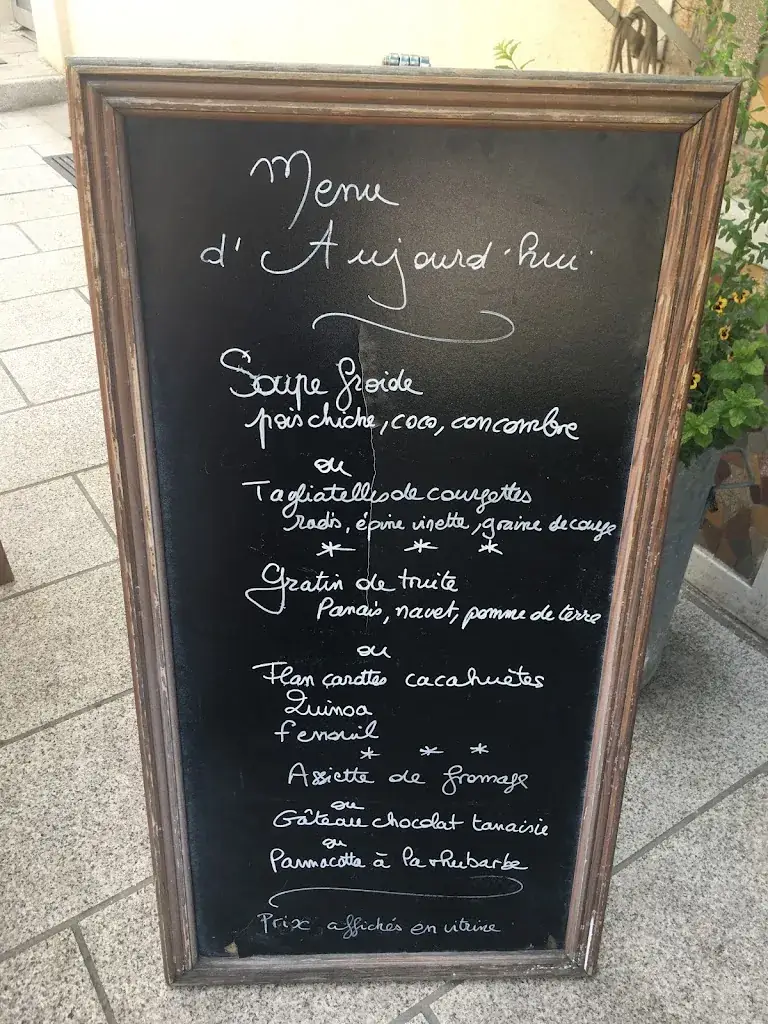 Menu
d'Aujourd'hui
Soupe froide
pois chiche, coco, concombre
ou
Tagliatelles de courgettes
radis, épine vinette, graine de courge
* * *
Gratin de truite
Panais, navet, pomme de terre
ou
Flan carottes cacahuètes
Quinoa
fenouil
* * *
Assiette de fromage
ou
Gâteau chocolat tanaisie
ou
Pannacotta à la rhubarbe
Prix affichés en vitrine